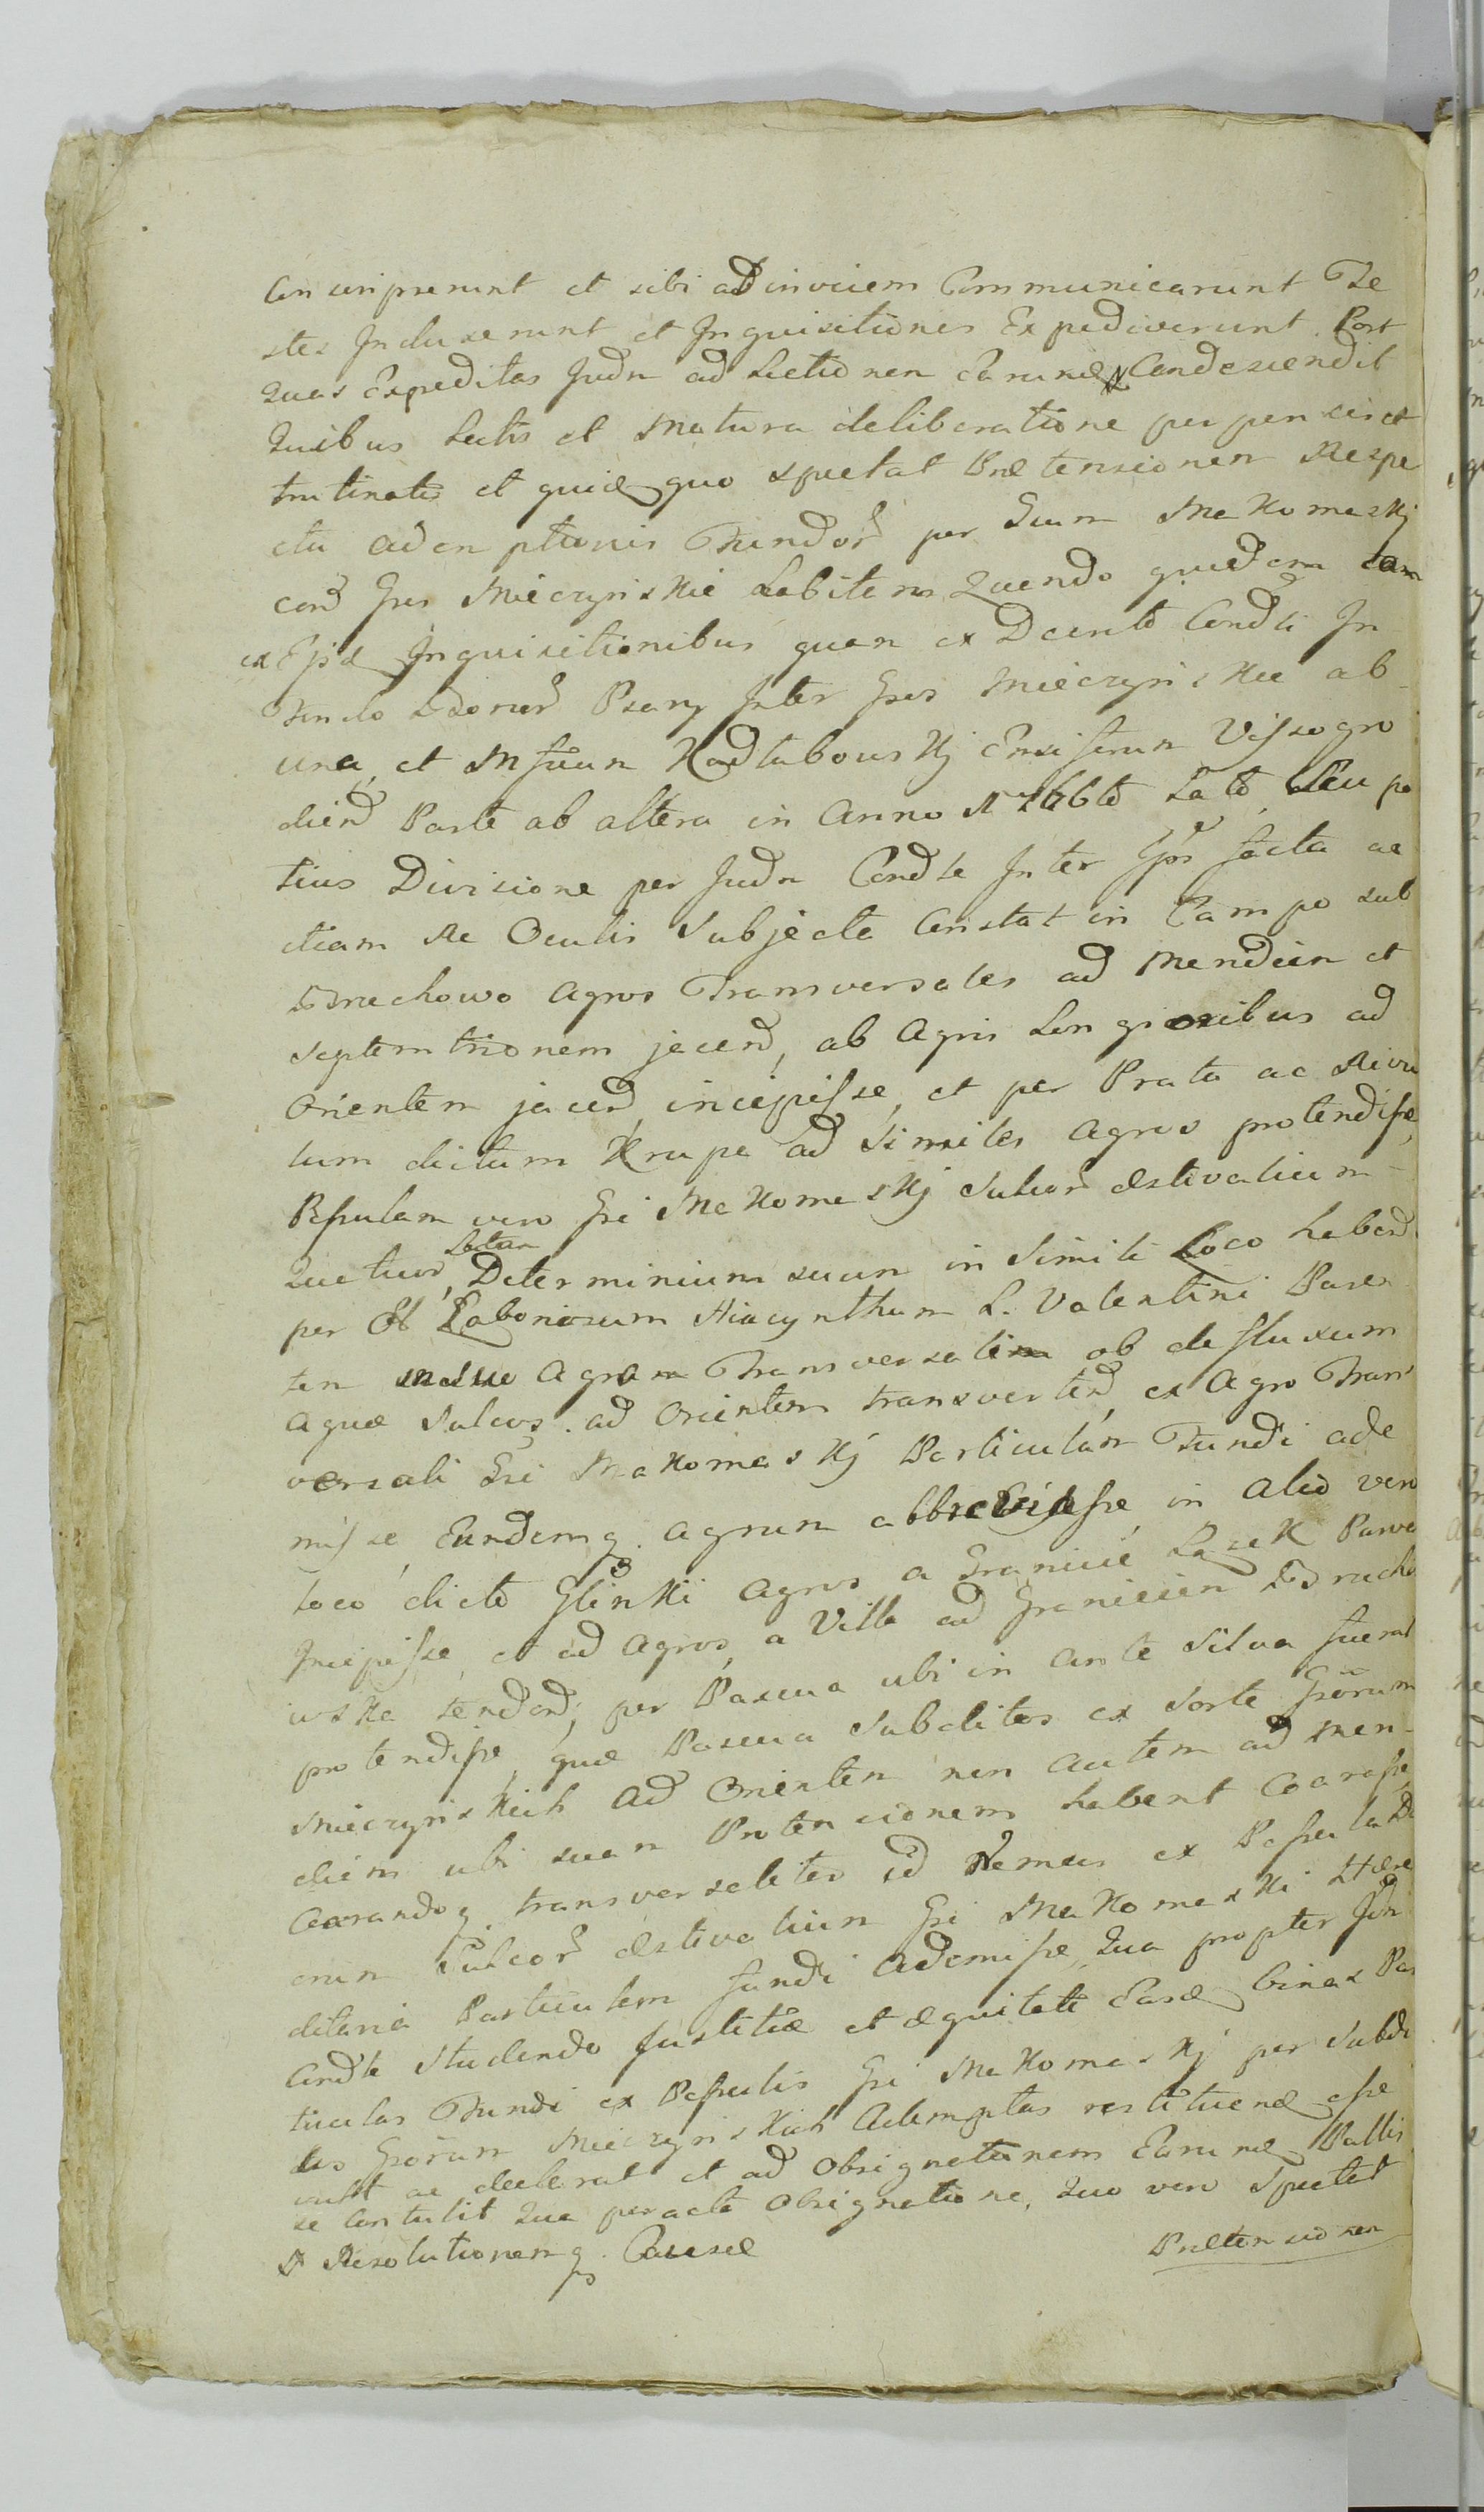 Conscripserunt et sibi adinvicem Communicarunt Te
stes Induxerunt et Inquisitiones Expediverunt. Post
quas Expeditas Judm ad Lectionem Earund Condescendit
Quibus Lectis et matura deliberatione perpensis et
trutinatis et quid quo spectat Prætensionem Respe
ctu ademptionis Fundor per Gsum Makomaskj
cond Gsos Mieczynskie habitam Quando quidem tam
ex Ejsd Inquisitionibus quam ex Dcreto Condli In
fundo Bonor Psary Inter Gsos Mieczynskie ab
una, et Mfcum Nadtabowskj Ensiferum Vissogro
dien Parte ab altera in Anno 1766to Lato, Seu po
tius Divisione per Judm Condle Inter Ipsos facta ac
etiam Re Oculis Subjecta Constat in Campo sub
Brachowo Agros Transversales ad Meridiem et
Septemtrionem jacend, ab Agris Longioribus ad
Orientem jacend incepisse, et per Prata ac Rivu
lum dictum Krupa ad Similes Agros protendisse,
Resulam vero Gsi Makomaskj Sulcor æstivalium
Quatuor Latam, Determinium suum in Simili Loco habend
per Ol Laboriosum Hiacynthum L. Valentini Paren
tem in suo Agro Transversali ob defluxum
Aquæ Sulcos ad Orientem transvertend, ex Agro Trans
versali Gsi Makomaskj Particulam Fundi ade
misse, Eundemq. Agrum abbreviasse in Alio vero
loco dicto Glinki Agros a Granicie Lasek Parva
Incepisse, et ad Agros, a Villa ad Graniciem Bracho
wska tendend, per Pascua ubi in Ante Silva fuerat
protendisse, quæ Pascua Subditos ex Sorte Gsorum
Mieczynskich Ad Orientem non autem ad Meri
diem ubi suam Protensionem habent Coarasse,
Coarandoq. transversaliter id Nemus ex Resula De
cem Sulcor æstivalium Gsi Makomaski Hære
ditaria Particulam fundi Ademisse, Qua propter Jud
Condle Studendo Justitiæ et æquitati Easd binas Par
ticulas Fundi ex Resulis Gsi Makomaskj per Subdi
tos Gsorum Mieczynskich Ademptas restituend esse
vult ac declarat et ad Obsignationem Earund Pallis
se Contulit Qua peracta Obsignatione, Quo vero Spectat
Resolutionemq. Causæ
Prætensionem